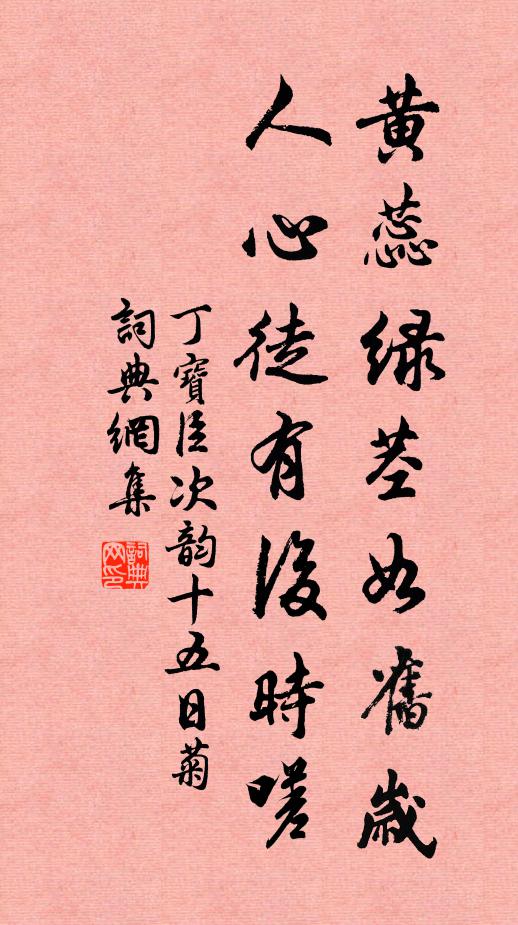 黄蕊绿茎如舊歲
人心徒有後時嗟
丁寶臣次韵十五日菊
詞典網集
詞典網印